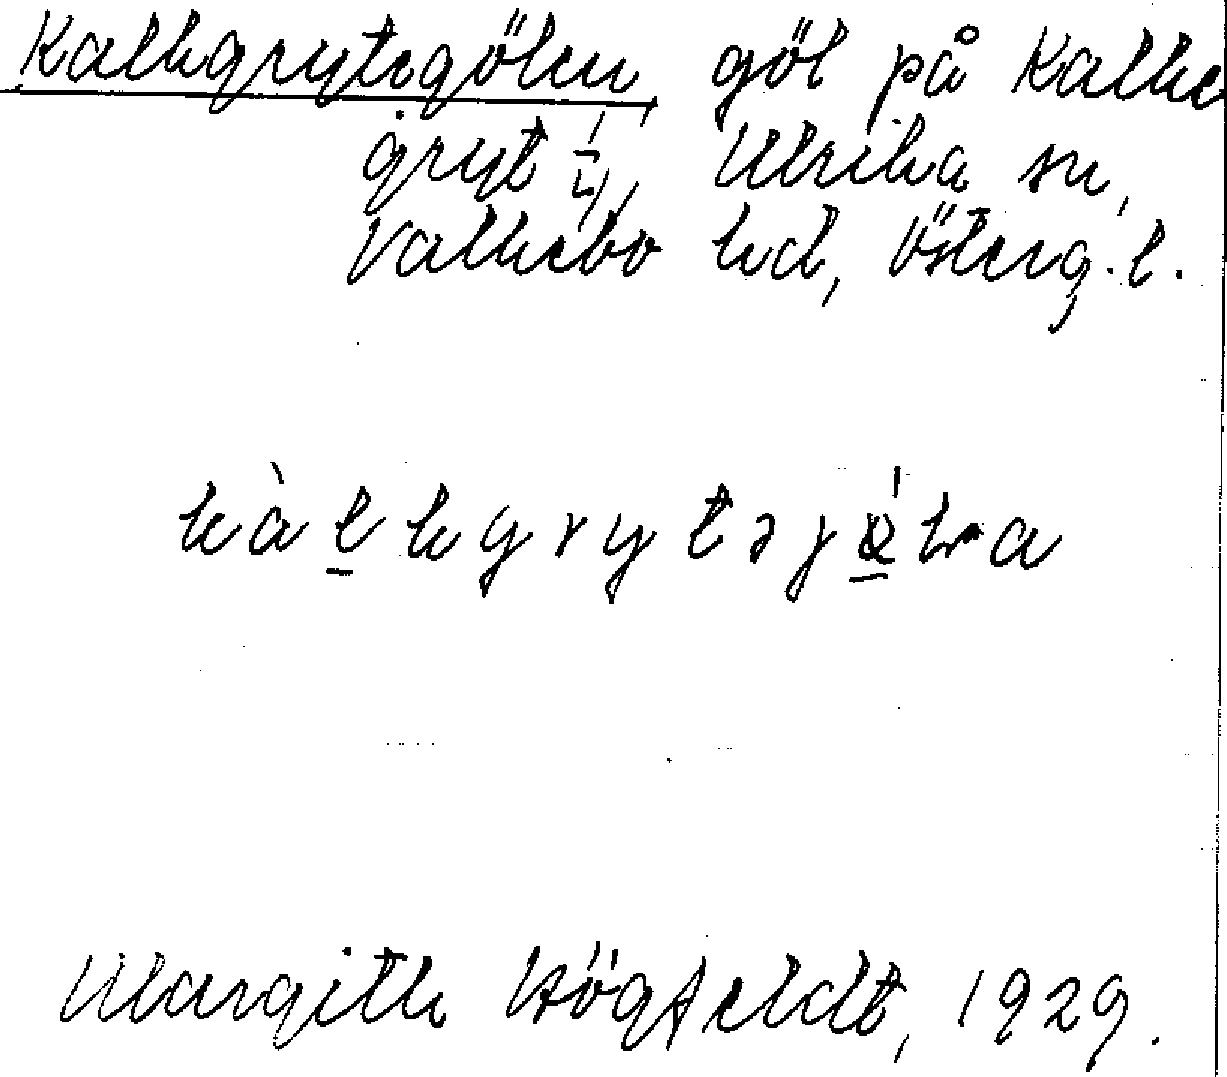 Kalkgrytsgölen, göl på Kalke
gryt ¼, Ulrika sn,
Valkebo hd, Österg. l.
kàlkgrytəjǿlna
Margith Högfeldt, 1929.